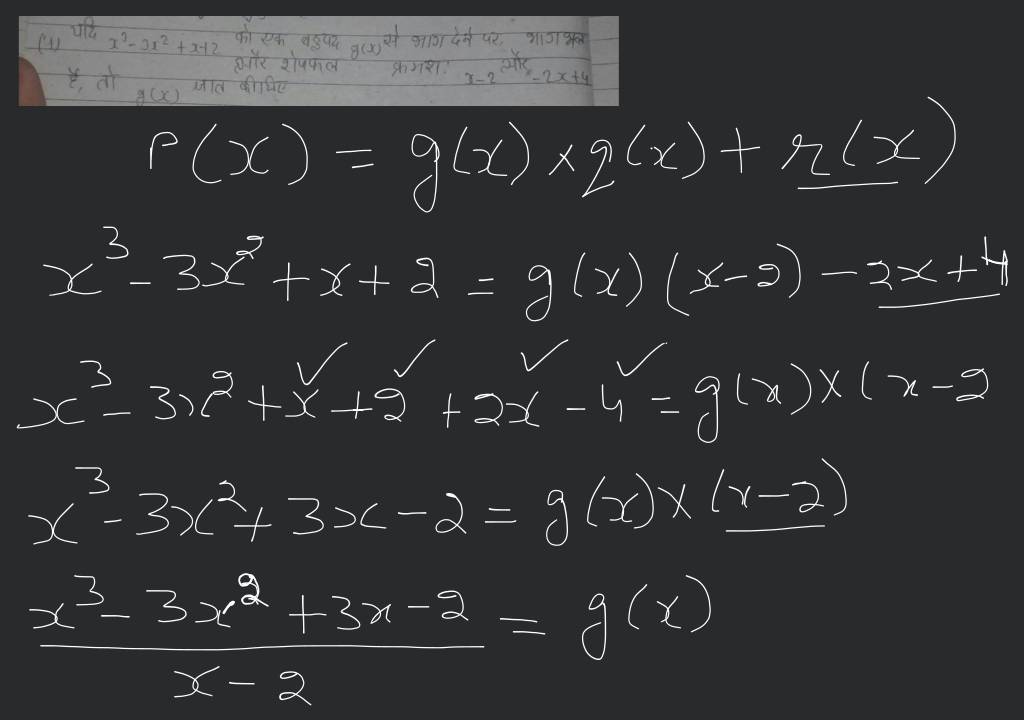 (1) यदि x³-3x²+x+2 को एक बहुपद g(x) से भाग देने पर, भागफल
और शेषफल क्रमश: x-2 और -2x+4
है, तो g(x) ज्ञात कीजिए
P(x) = g(x) × q(x) + r(x)
x³ - 3x² + x + 2 = g(x) (x-2) - 2x + 4
x³ - 3x² + x + 2 + 2x - 4 = g(x) × (x - 2
x³ - 3x² + 3x - 2 = g(x) × (x - 2)
x³ - 3x² + 3x - 2 = g(x)
x - 2